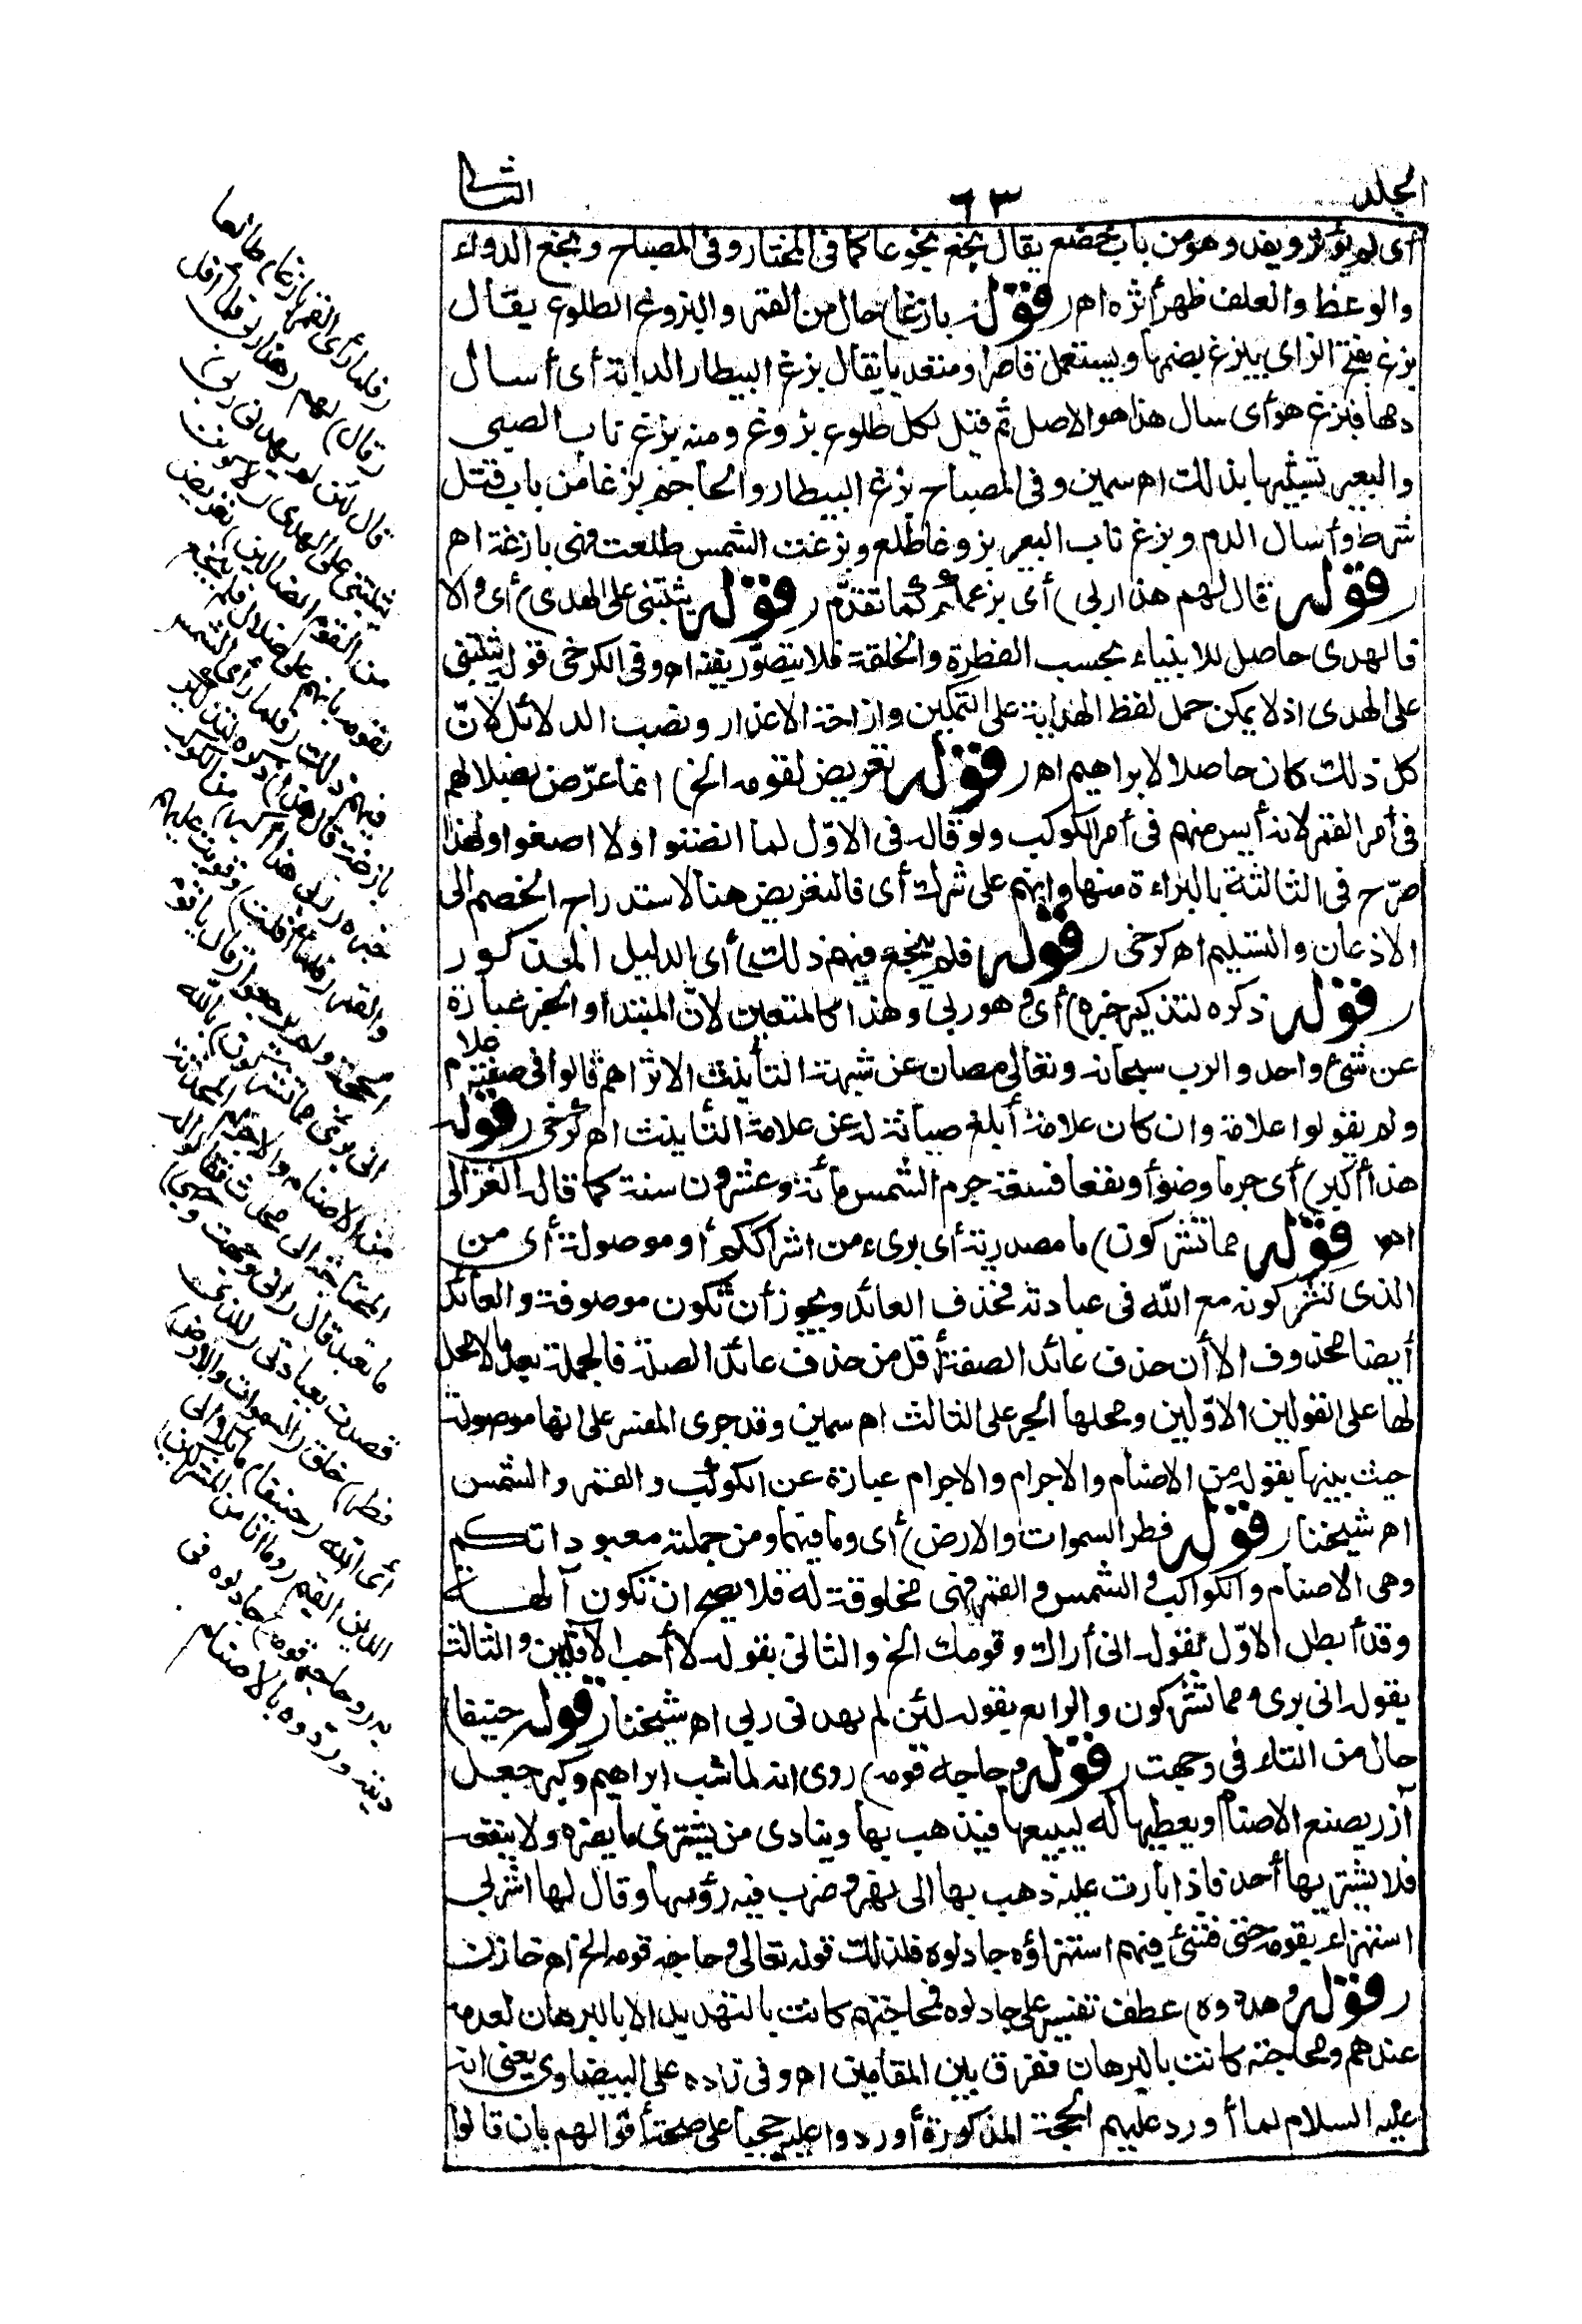 الجلد
٦٣
الثانى
أى لم يؤثر ويفد وهو من باب خضع يقال نجع نجوعا كما فى المختار وفى المصباح ونجع الدواء
والوعظ والعلف ظهر أثره اهـ (قوله بازغا) حال من القمر والبزوغ الطلوع يقال
بزغ بفتح الزاى يبزغ بضمها ويستعمل قاصرا ومتعديا يقال بزغ البيطار الدابة أى أسال
دمها فبزغ هو أى سال هذا هو الاصل ثم قيل لكل طلوع بزوغ ومنه بزغ ناب الصبى
والبعير تشبيها بذلك اهـ سمين وفى المصباح بزغ البيطار والحاجم بزغا من باب قتل
شرط وأسال الدم وبزغ ناب البعير بزوغا طلع وبزغت الشمس طلعت فهى بازغة اهـ
(قوله قال لهم هذا ربى) أى بزعمكم كما تقدّم (قوله يثبتنى على الهدى) أى والا
فالهدى حاصل للانبياء بحسب الفطرة والخلقة فلا يتصوّر نفيه اهـ وفى الكرخى قوله يثبتنى
على الهدى اذ لا يمكن حمل لفظ الهداية على التمكين وازاحة الاعذار ونصب الدلائل لانّ
كل ذلك كان حاصلا لابراهيم اهـ (قوله تعريض لقومه الخ) انما عرّض بضلالهم
فى أمر القمر لانه أيس منهم فى أمر الكوكب ولو قاله فى الاوّل لما انصتوا ولا اصغوا ولهذا
صرّح فى الثالثة بالبراءة منها وانهم على شرك أى فالتعريض هنا لاستدراج الخصم الى
الاذعان والتسليم اهـ كرخى (قوله فلم ينجع فيهم ذلك) أى الدليل المذكور
(قوله ذكره لتذكير خبره) أى وهو ربى وهذا كالمتعين لانّ المبتدأ والخبر عبارة
عن شئ واحد والرب سبحانه وتعالى مصان عن شبهة التأنيث الا تراهم قالوا فى صفته علام
ولم يقولوا علامة وان كان علامة أبلغ صيانة له عن علامة التأنيث اهـ كرخى (قوله
هذا أكبر) أى جرما وضوأ ونفعا فسعة جرم الشمس مائة وعشرون سنة كما قاله الغزالى
اهـ (قوله مما تشركون) ما مصدرية أى برىء من اشراككم أو موصولة أى من
الذى تشركونه مع الله فى عبادته فحذف العائد ويجوز أن تكون موصوفة والعائد
أيضا محذوف الا أن حذف عائد الصفة أقل من حذف عائد الصلة فالجملة بعد ما لا محل
لها على القولين الاوّلين ومحلها الجر على الثالث اهـ سمين وقد جرى المفسر على انها موصولة
حيث بينها بقوله من الاصنام والاجرام والاجرام عبارة عن الكوكب والقمر والشمس
اهـ شيخنا (قوله فطر السموات والارض) أى وما فيهما ومن جملته معبوداتكم
وهى الاصنام والكواكب والشمس والقمر فهى مخلوقة له فلا يصح ان تكون آلهة
وقد أبطل الاوّل بقوله انى أراك وقومك الخ والثانى بقوله لا أحب الآفلين والثالث
بقوله انى برىء مما تشركون والرابع بقوله لئن لم يهدنى ربى اهـ شيخنا (قوله حنيفا)
حال من التاء فى وجهت (قوله وحاجه قومه) روى انه لما شب ابراهيم وكبر جعل
آزر يصنع الاصنام ويعطيها له ليبيعها فيذهب بها وينادى من يشترى ما يضره ولا ينفعه
فلا يشتريها أحد فاذا بارت عليه ذهب بها الى نهر وضرب فيه رؤسها وقال لها اشربى
استهزاء بقومه حتى فشئ فيهم استهزاؤه جادلوه فلذلك قوله تعالى وحاجه قومه الخ اهـ خازن
(قوله وهددوه) عطف تفسير على جادلوه فمحاجتهم كانت بالتهديد لا بالبرهان لعدمه
عندهم ومحاجته كانت بالبرهان ففرق بين المقامين اهـ وفى زاده على البيضاوى يعنى انه
عليه السلام لما أورد عليهم الحجة المذكورة أوردوا عليه حججا على صحة أقوالهم بان قالوا
(فلما رأى القمر بازغا) طالعا
(قال) لهم (هذا ربى فلما أفل
قال لئن لم يهدنى ربى)
يثبتنى على الهدى (لاكونن
من القوم الضالين) تعريض
لقومه بانهم على ضلال فلم ينجع
فيهم ذلك (فلما رأى الشمس
بازغة قال هذا) ذكره لتذكير
خبره (ربى هذا أكبر) من الكوكب
والقمر (فلما أفلت) وقويت عليهم
الحجة ولم يرجعوا (قال يا قوم
انى برىء مما تشركون) بالله
من الاصنام والاجرام المحدثة
المحتاجة الى محدث فقالوا له
ما تعبد قال (انى وجهت وجهى)
قصدت بعبادتى (للذى
فطر) خلق (السموات والارض)
أى الله (حنيفا) مائلا الى
الدين القيم (وما انا من المشركين)
به (وحاجه قومه) جادلوه فى
دينه وهددوه بالاصنام